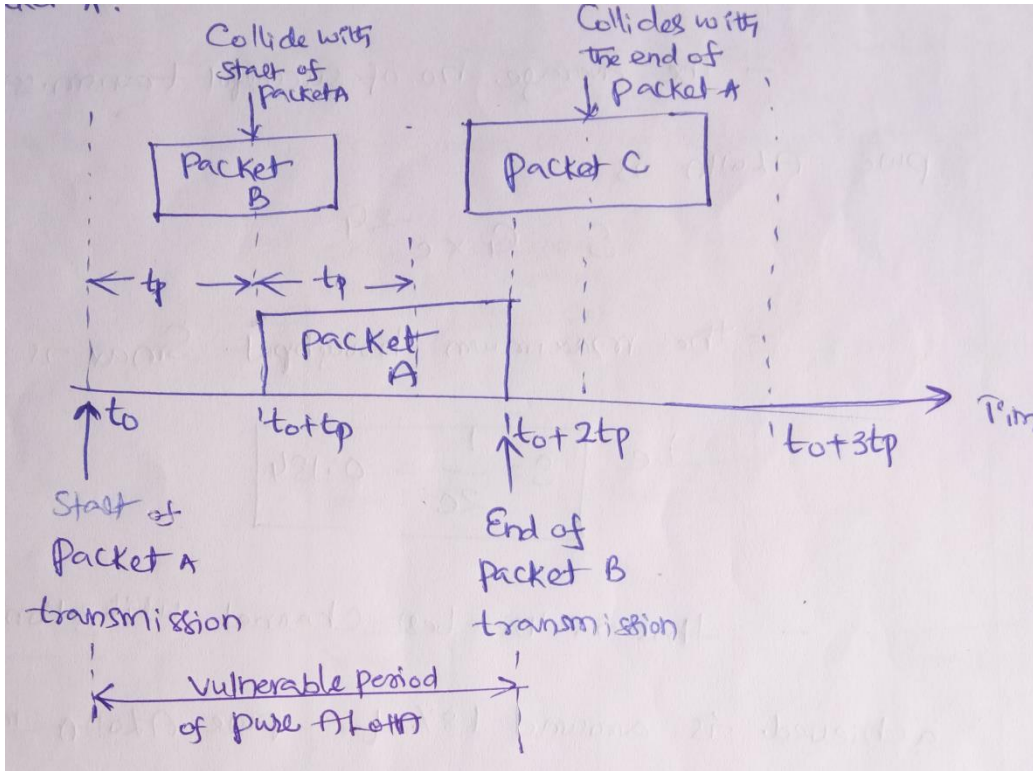 Collide with
start of
packet A
Collides with
the end of
packet A
Packet
B
Packet C
tp
tp
Packet
A
to
to+tp
to+2tp
to+3tp
Start of
Packet A
transmission
End of
packet B
transmission
Vulnerable period
of pure ALOHA